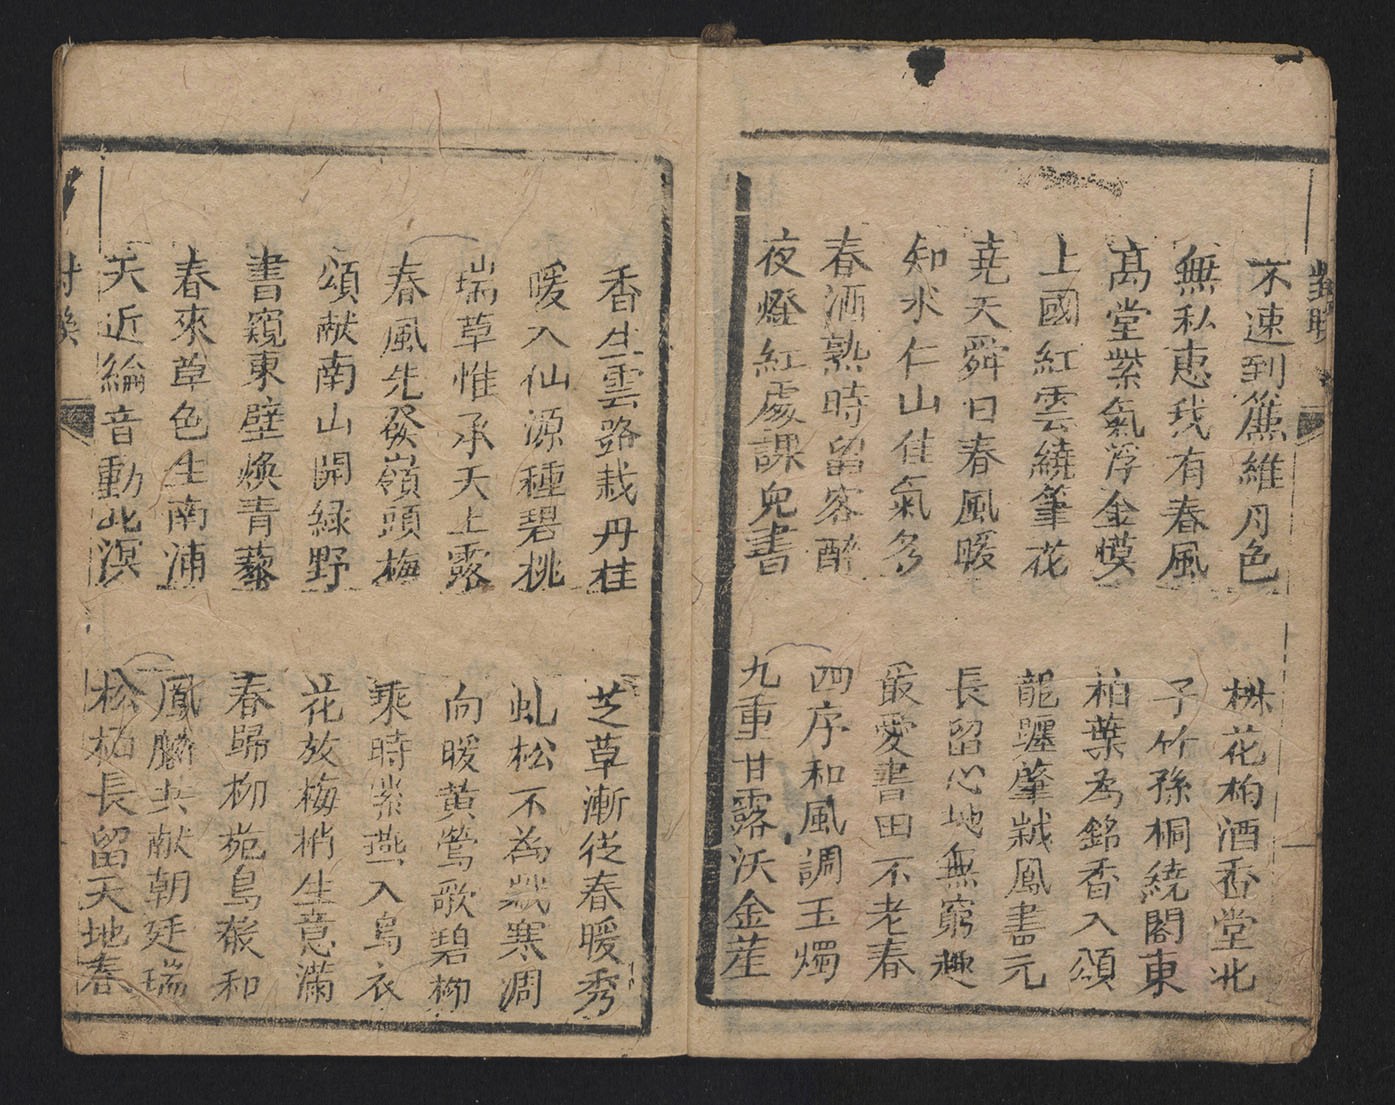 對聯
不速到簾維月色
椒花柏酒香堂北
無私惠我有春風
子竹孫桐繞閣東
髙堂紫氣浮金幙
柏葉為銘香入頌
上國紅雲繞筆花
龍躔肇歲鳳書元
堯天舜日春風暖
長留心地無窮趣
知水仁山佳氣多
最愛書田不老春
春酒熟時留客醉
四序和風調玉燭
夜燈紅處課兒書
九重甘露沃金莖
香生雲路栽丹桂
芝草漸從春暖秀
暖入仙源種碧桃
虬松不為歲寒凋
瑞草惟承天上露
向暖黄鶯歌碧柳
春風先發嶺頭梅
乘時紫燕入烏衣
頌献南山開緑野
花放梅梢生意滿
書窺東壁煥青藜
春歸柳苑鳥聲和
春來草色生南浦
鳳麟共献朝廷瑞
天近綸音動北溟
松柏長留天地春